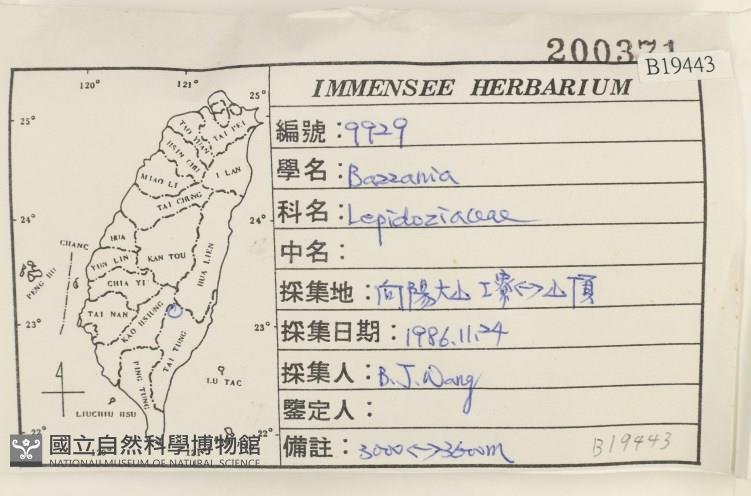 200371
B19443
IMMENSEE HERBARIUM
編號：9929
學名：Bazzania
科名：Lepidoziaceae
中名：
採集地：向陽大山工寮<->山頂
採集日期：1986.11.24
採集人：B.J.Wang
鑒定人：
備註：3000<->3600m
B19443
120° 121°
25° 25°
TAO YUAN TAI PEI
HSIN CHU
MIAO LI I LAN
TAI CHUNG
24° 24°
CHANG HUA
YUN LIN KAN TOU HUA LIEN
PENG HU
CHIA YI
TAI NAN KAO HSIUNG
23° 23°
PING TUNG TAI TUNG
LU TAO
LIUCHIU HSU
22° 22°
國立自然科學博物館
NATIONAL MUSEUM OF NATURAL SCIENCE